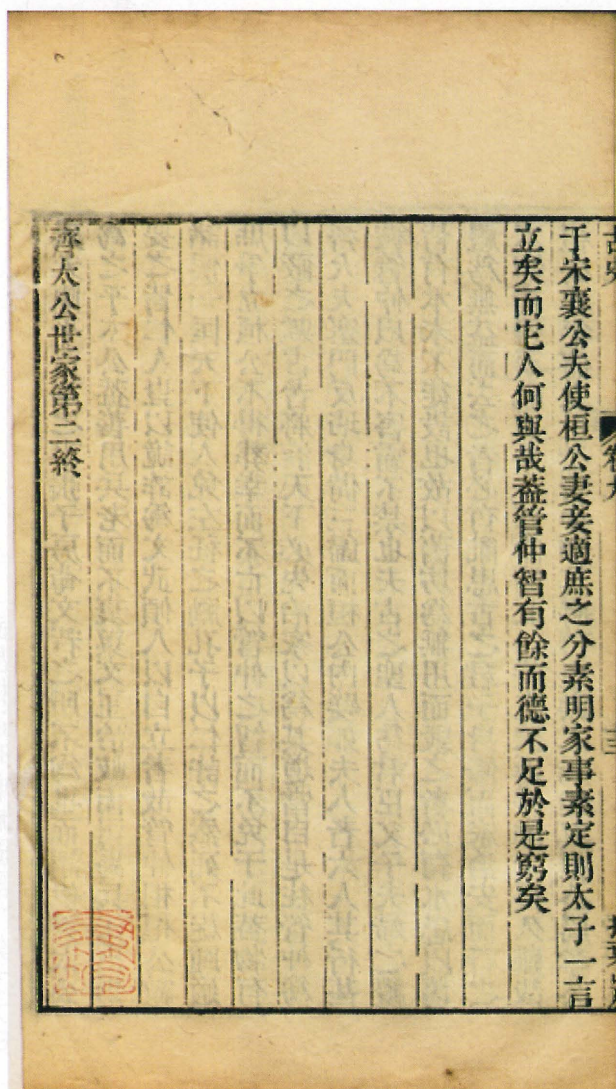 古史 卷九
于宋襄公夫使桓公妻妾適庶之分素明家事素定則太子一言
立矣而它人何與哉葢管仲智有餘而德不足於是窮矣
齊太公世家第二終